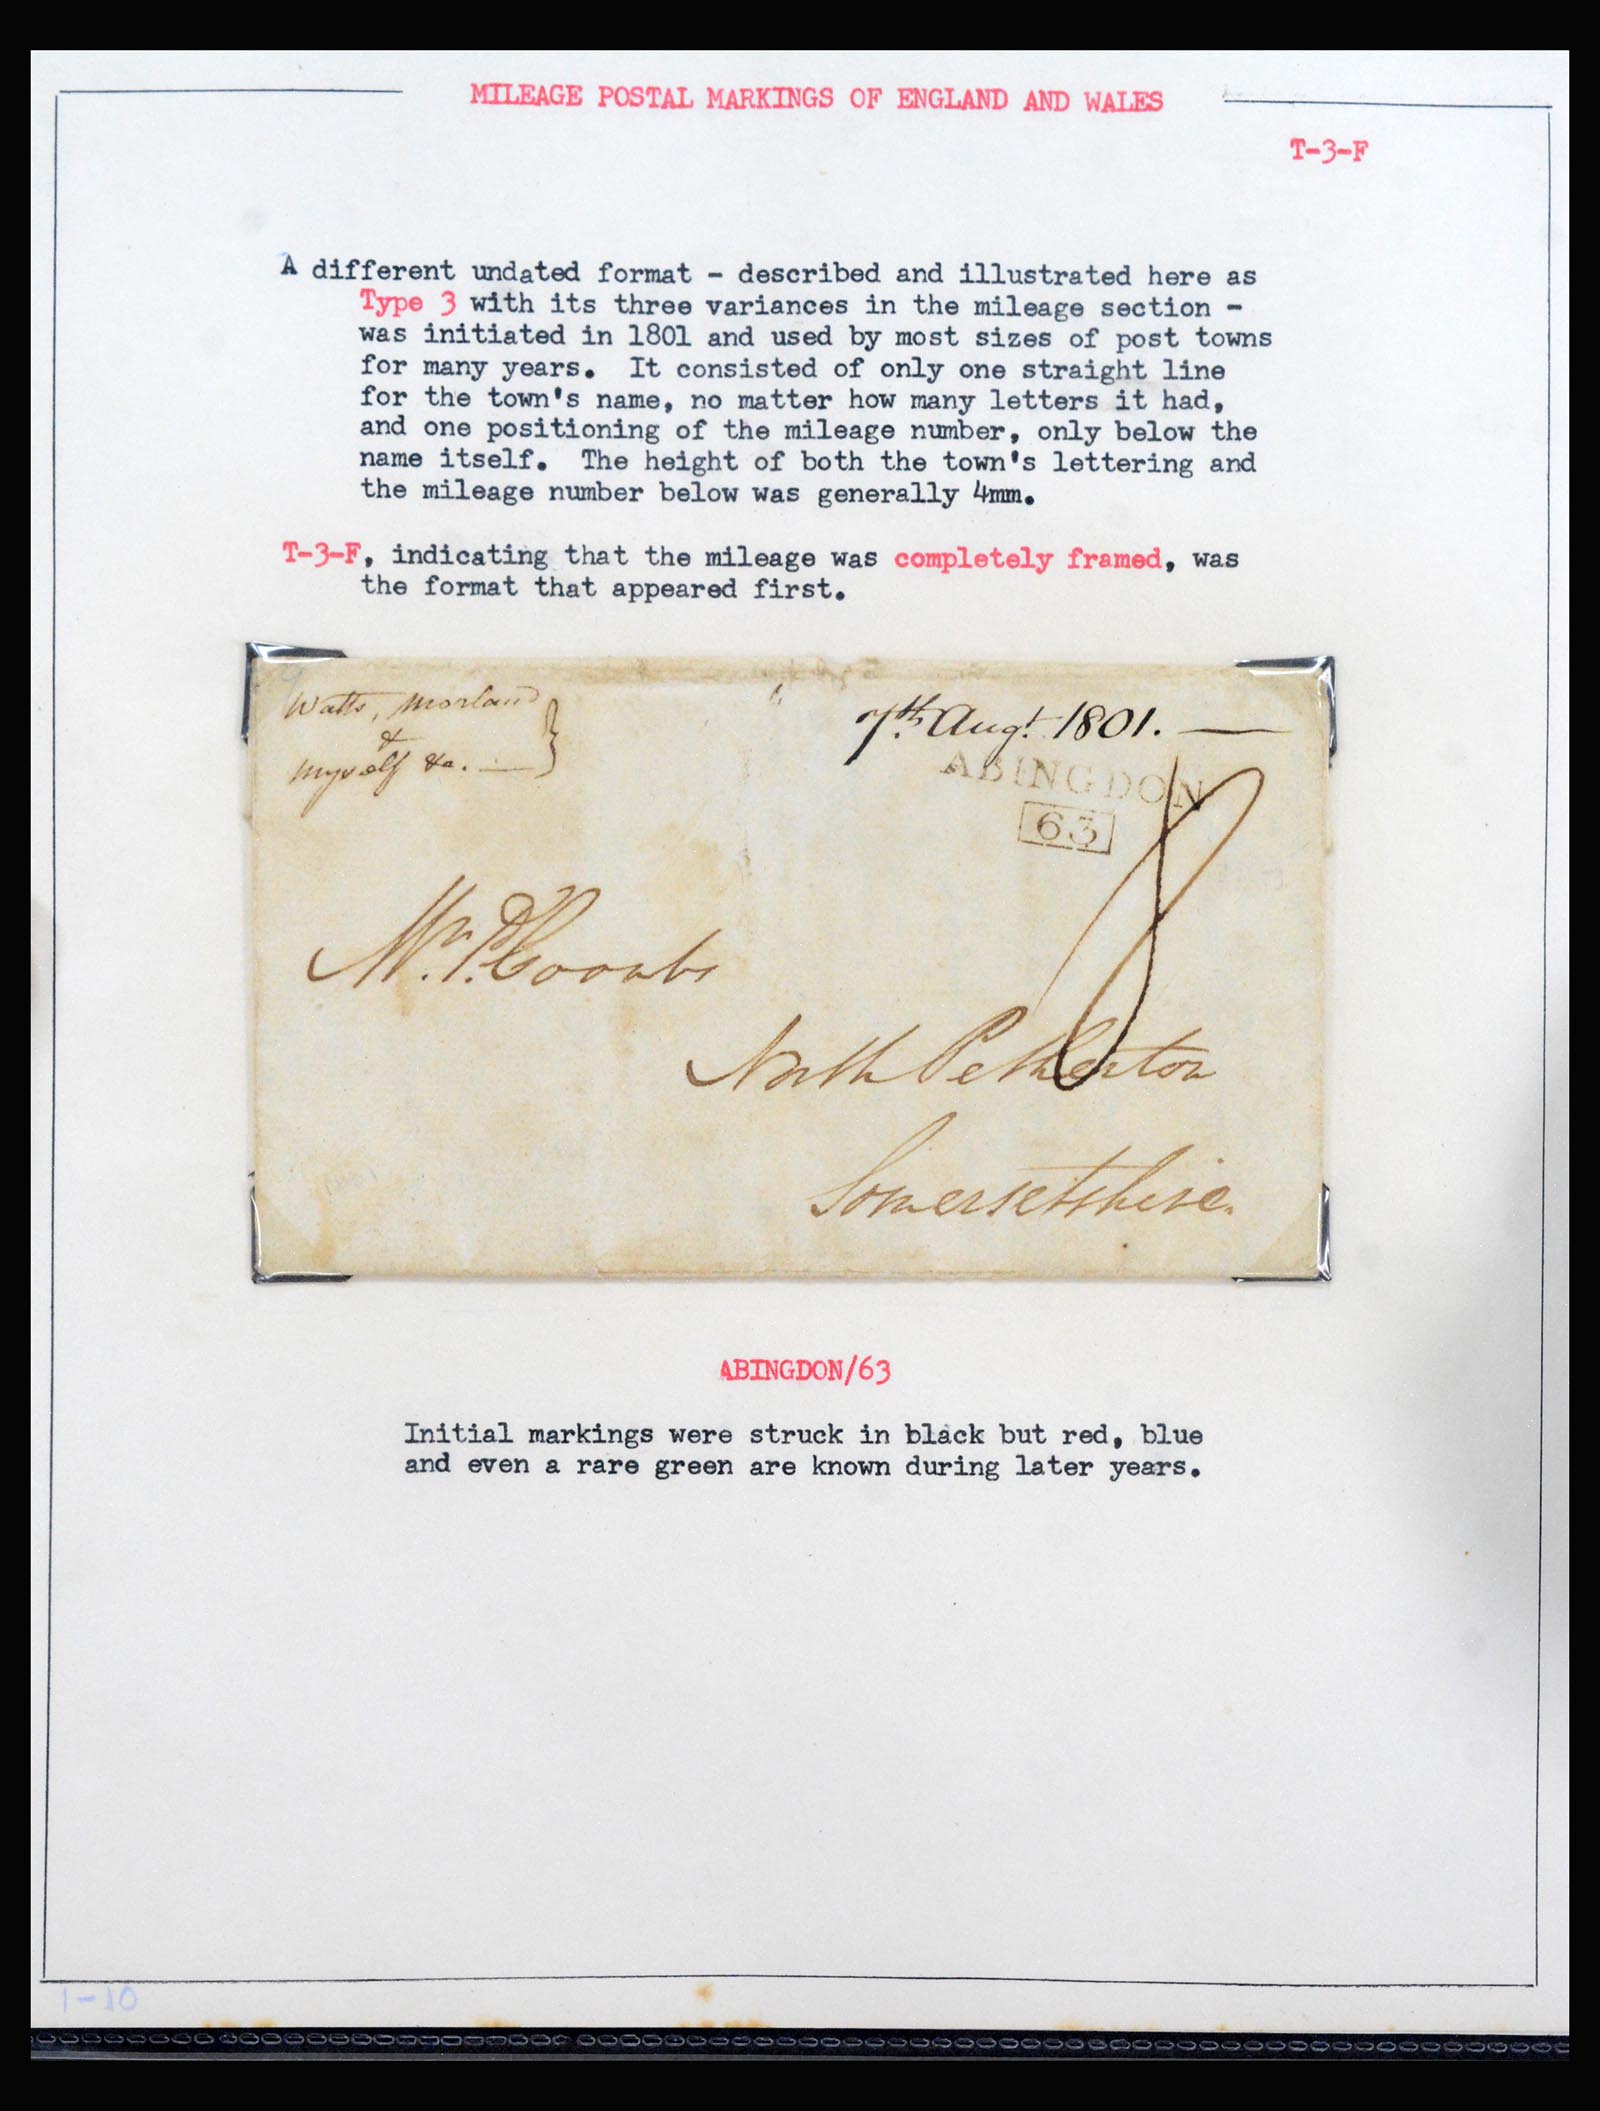 MILEAGE POSTAL MARKINGS OF ENGLAND AND WALES
T-3-F
A different undated format - described and illustrated here as
Type 3 with its three variances in the mileage section -
was initiated in 1801 and used by most sizes of post towns
for many years. It consisted of only one straight line
for the town's name, no matter how many letters it had,
and one positioning of the mileage number, only below the
name itself. The height of both the town's lettering and
the mileage number below was generally 4mm.
T-3-F, indicating that the mileage was completely framed, was
the format that appeared first.
Watts, Morland
&
myself &c.
7th Augt. 1801.
ABINGDON
63
8
Mr. P. Coombs
North Petherton
Somersetshire.
ABINGDON/63
Initial markings were struck in black but red, blue
and even a rare green are known during later years.
1-10